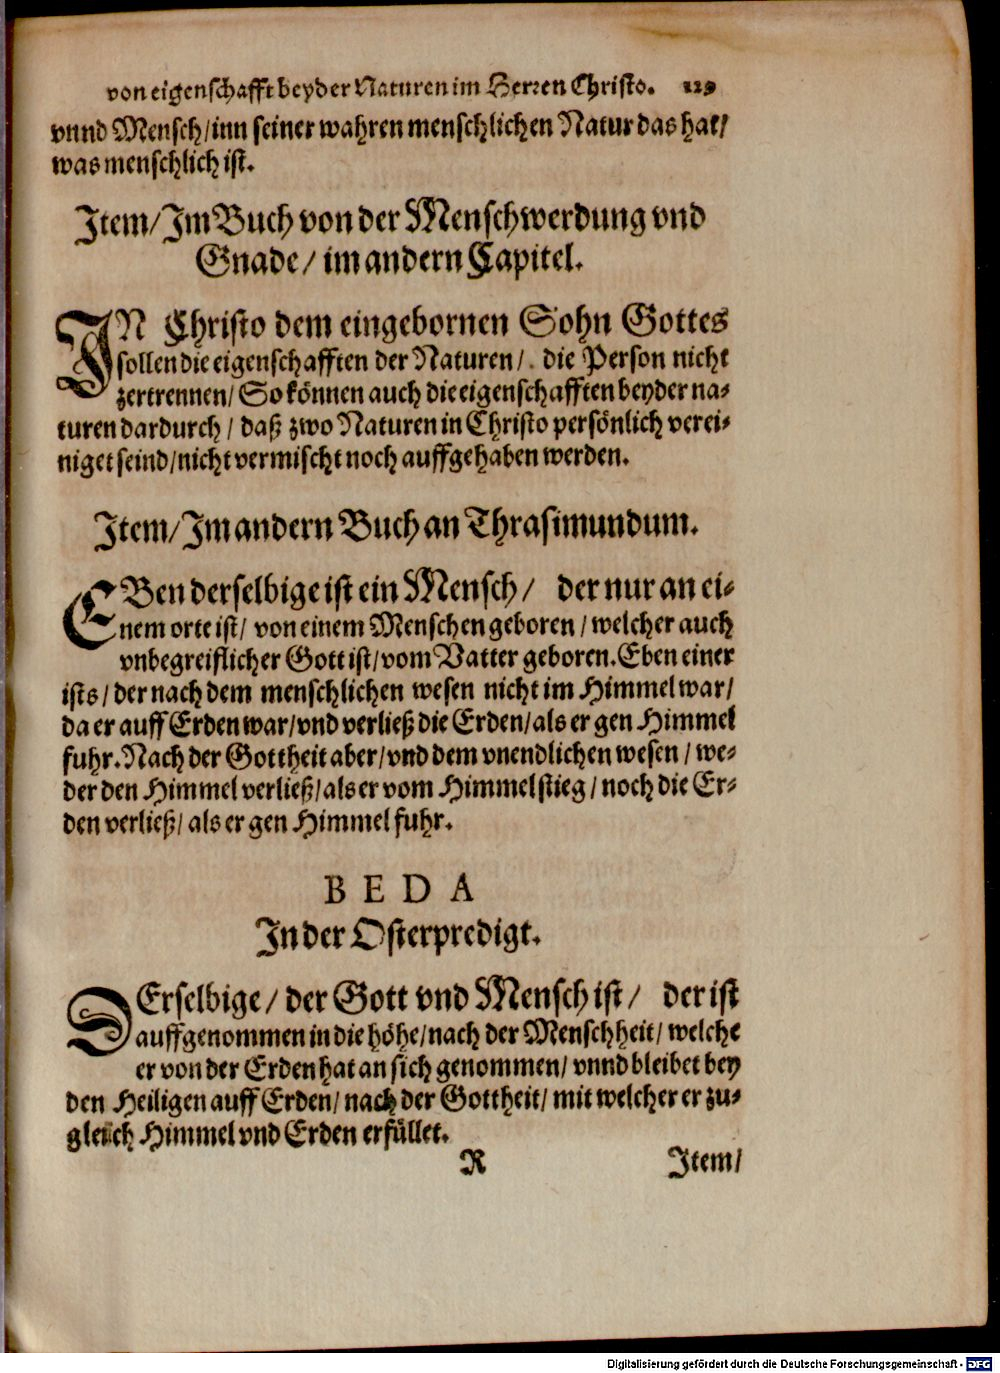 von eigenschafft beyder Naturen im Herren Christo. 129
vnnd Mensch/ inn seiner wahren menschlichen Natur das hat/
was menschlich ist.
Item/ Im Buch von der Menschwerdung vnd
Gnade/ im andern Capitel.
IN Christo dem eingebornen Sohn Gottes
sollen die eigenschafften der Naturen/ die Person nicht
zertrennen/ So können auch die eigenschafften beyder na-
turen dardurch/ daß zwo Naturen in Christo persönlich verei-
niget seind/ nicht vermischt noch auffgehaben werden.
Item/ Im andern Buch an Thrasimundum.
EBen derselbige ist ein Mensch/ der nur an ei-
nem orte ist/ von einem Menschen geboren/ welcher auch
vnbegreiflicher Gott ist/ vom Vatter geboren. Eben einer
ists/ der nach dem menschlichen wesen nicht im Himmel war/
da er auff Erden war/ vnd verließ die Erden/ als er gen Himmel
fuhr. Nach der Gottheit aber/ vnd dem vnendlichen wesen/ we-
der den Himmel verließ/ als er vom Himmel stieg/ noch die Er-
den verließ/ als er gen Himmel fuhr.
BEDA
In der Osterpredigt.
DErselbige/ der Gott vnd Mensch ist/ der ist
auffgenommen in die höhe/ nach der Menschheit/ welche
er von der Erden hat an sich genommen/ vnnd bleibet bey
den Heiligen auff Erden/ nach der Gottheit/ mit welcher er zu-
gleich Himmel vnd Erden erfüllet.
R Item/
Digitalisierung gefördert durch die Deutsche Forschungsgemeinschaft - DFG